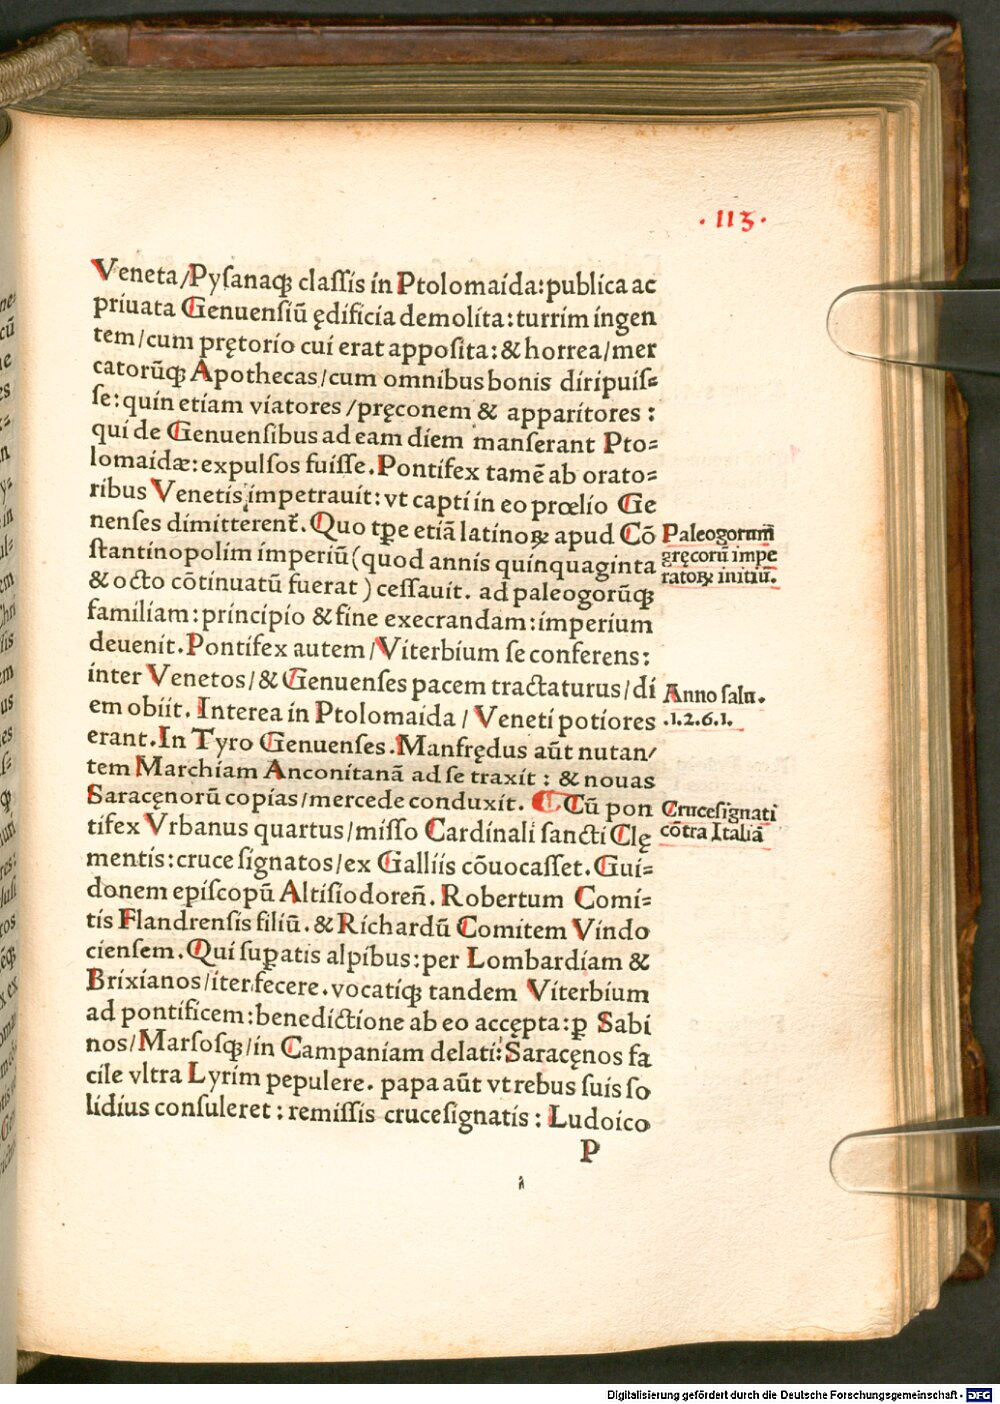 .113.
Veneta/Pysanaqꝫ classis in Ptolomaida:publica ac
priuata Genuensiū ędificia demolita:turrim ingen
tem/cum prętorio cui erat apposita:& horrea/mer
catorūqꝫ Apothecas/cum omnibus bonis diripuis⸗
se:quin etiam viatores/pręconem & apparitores:
qui de Genuensibus ad eam diem manserant Pto⸗
lomaidæ:expulsos fuisse.Pontifex tamē ab orato⸗
ribus Venetis impetrauit:vt capti in eo prœlio Ge
nenses dimitterent̄.Quo tꝑe etiā latinoꝝ apud Cō
stantinopolim imperiū(quod annis quinquaginta
& octo cōtinuatū fuerat) cessauit. ad paleogorūqꝫ
familiam:principio & fine execrandam:imperium
deuenit.Pontifex autem/Viterbium se conferens:
inter Venetos/& Genuenses pacem tractaturus/di
em obiit. Interea in Ptolomaida / Veneti potiores
erant.In Tyro Genuenses.Manfrędus aūt nutan/
tem Marchiam Anconitanā ad se traxit: & nouas
Saracęnorū copias/mercede conduxit. ⸿ Cū pon
tifex Vrbanus quartus/misso Cardinali sancti Clę
mentis:cruce signatos/ex Galliis cōuocasset.Gui⸗
donem episcopū Altisiodoreñ. Robertum Comi⸗
tis Flandrensis filiū.& Richardū Comitem Vindo
ciensem.Qui suꝑatis alpibus:per Lombardiam &
Brixianos/iter fecere.vocatiqꝫ tandem Viterbium
ad pontificem:benedictione ab eo accępta:ꝑ Sabi
nos/Marsosqꝫ/in Campaniam delati:Saracęnos fa
cile vltra Lyrim pepulere. papa aūt vt rebus suis so
lidius consuleret: remissis crucesignatis: Ludoico
P
Paleogorum̄
gręcorū impe
ratoꝝ initiū.
Anno salu.
.1.2.6.1.
Crucesignati
cōtra Italiā
Digitalisierung gefördert durch die Deutsche Forschungsgemeinschaft - DFG